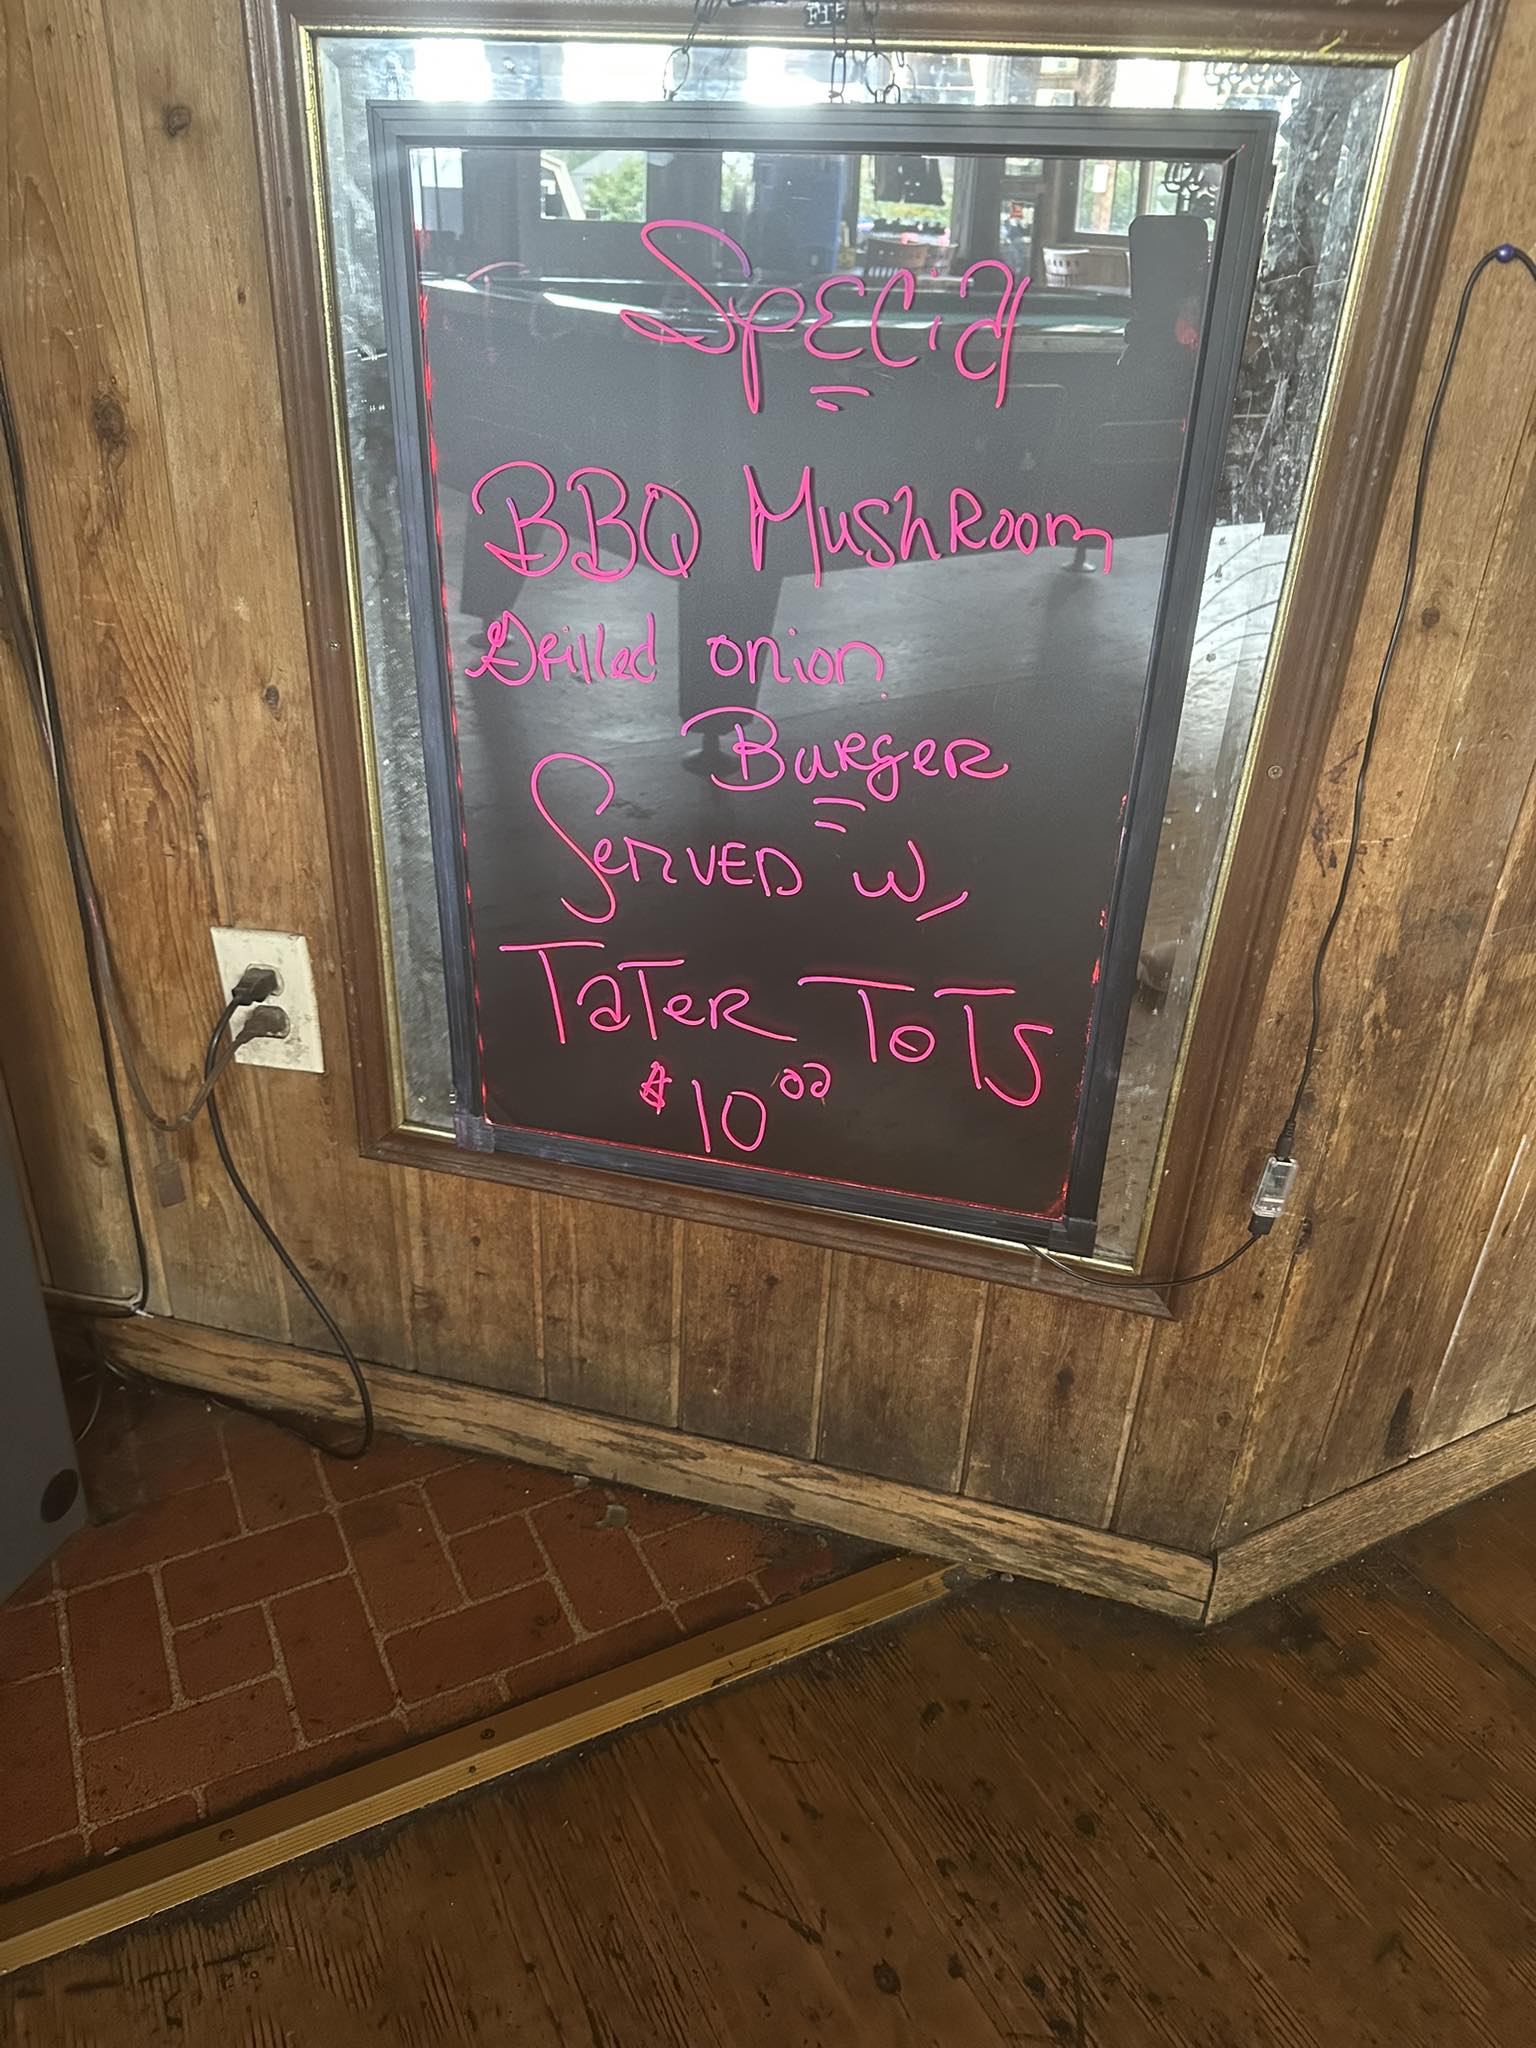 Special
BBQ MushRoom
Grilled onion
BuRgeR
SeRVED w/
TaTeR ToTS
$10.00